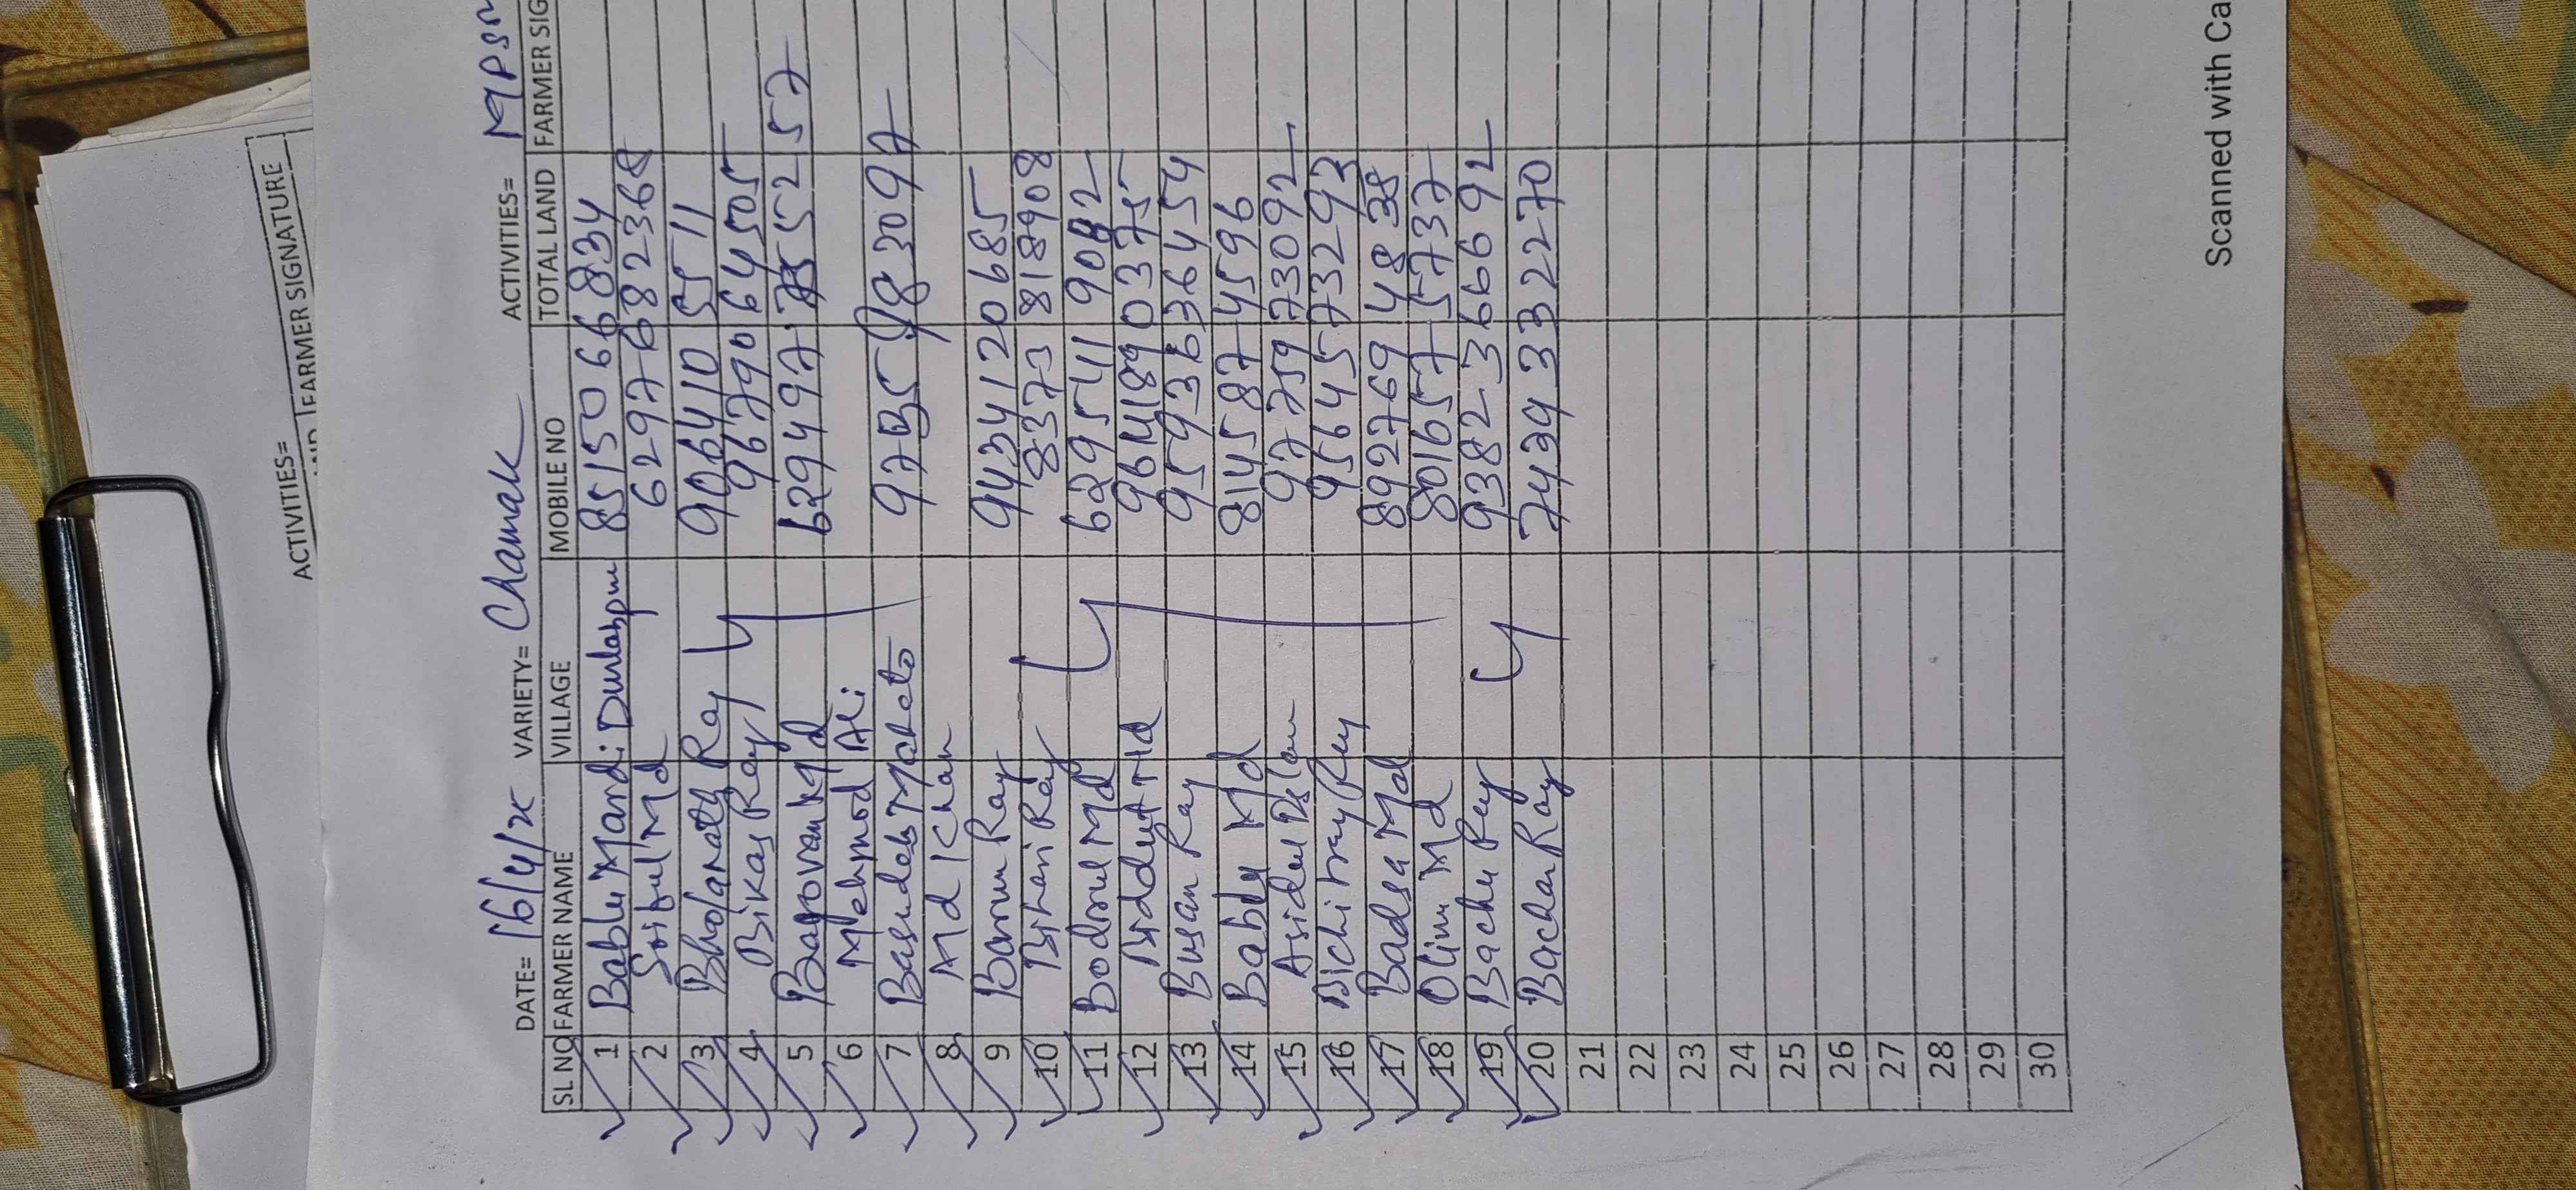 ACTIVITIES=
FARMER SIGNATURE
ACTIVITIES=
FARMER SIGNATURE
DATE= 16/4/ VARIETY= Chamak ACTIVITIES= MPSM
SL NO FARMER NAME VILLAGE MOBILE NO TOTAL LAND FARMER SIG
1 Bablu Mardi Durlabpur 8515066834
2 Md 6297682368
3 Bholanath Ray 9064105511
4 Bikas Ray 9679064505
5 Md 629497 552 57
6 Mehmod Ali
7 Basudeb Mahato 9735 983097
8 Md Khan
9 Barun Ray 9434120685
10 Bihari Ray 8373818908
11 Bodrul Md 629541902
12 Md 9641890375
13 Busan Ray 9593636454
14 Bablu Md 8145874596
15 Asidul Islam 9775973092
16 Bichitray Ray 9564573293
17 Badsa Md 8927694838
18 Olim Md 8016575737
19 Bachu Ray 9382366692
20 Bachan Ray 7439332270
21
22
23
24
25
26
27
28
29
30
Scanned with Ca